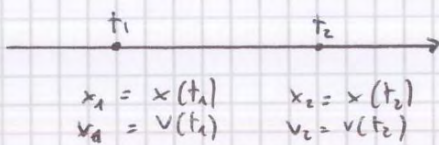 t₁ t₂
x₁ = x(t₁) x₂ = x(t₂)
v₁ = v(t₁) v₂ = v(t₂)